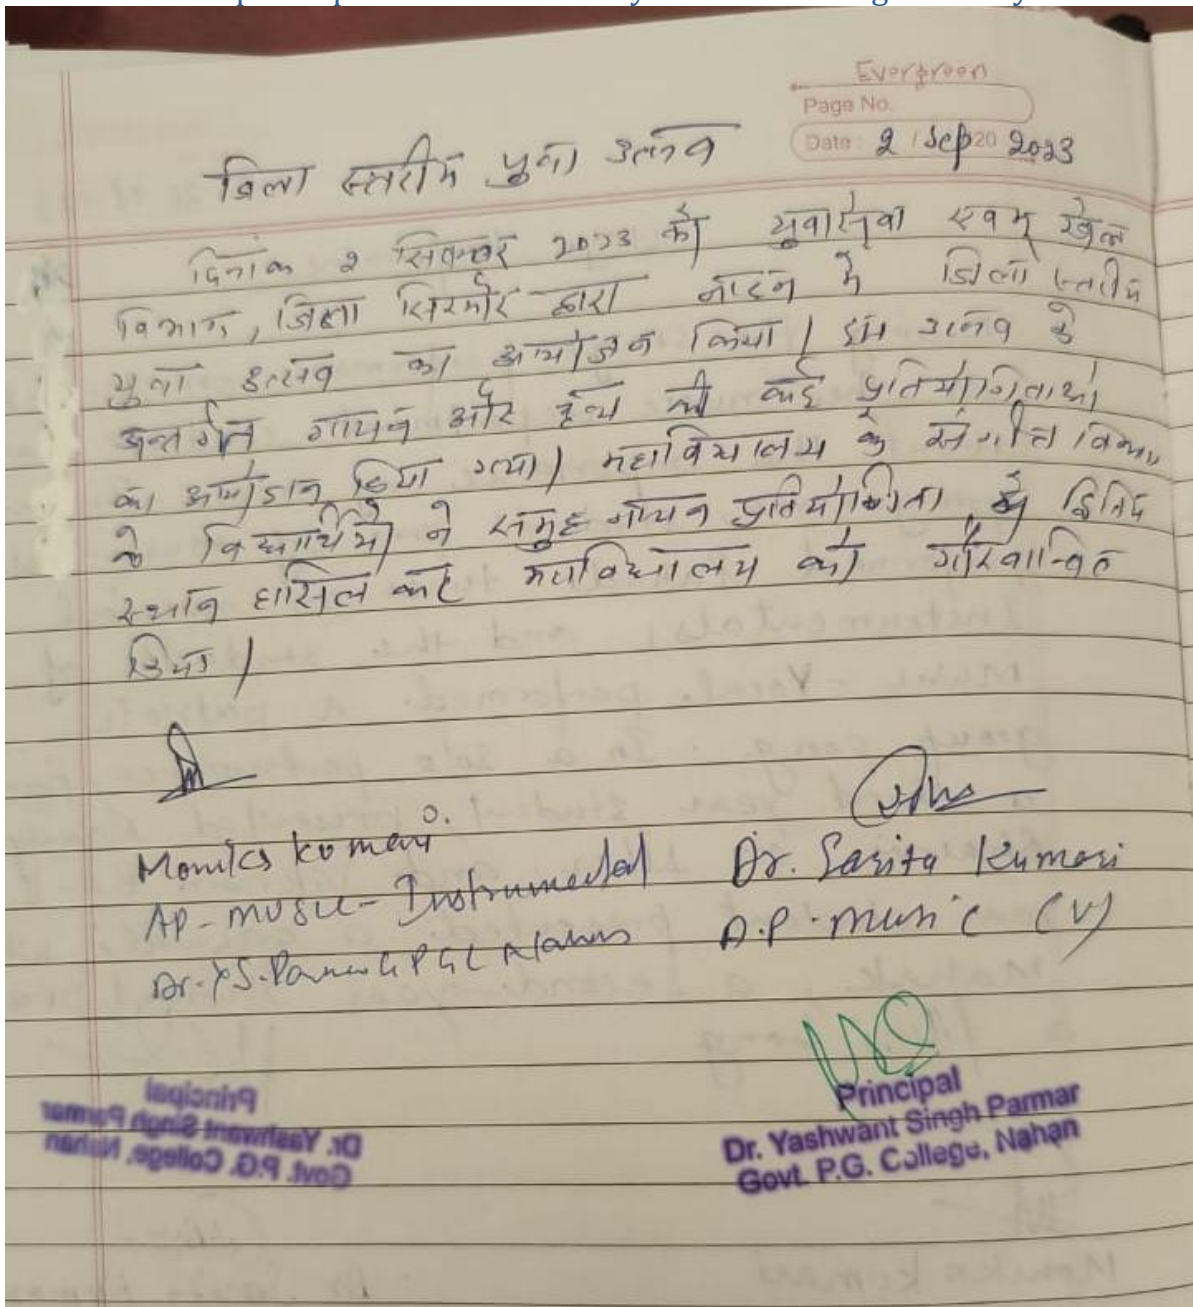 Evergreen
Page No.
Date: 2 / Sep 20 2023
जिला स्तरीय युवा उत्सव
दिनांक 2 सितम्बर 2023 को युवा सेवा एवम् खेल
विभाग, जिला सिरमौर द्वारा नाहन में जिला स्तरीय
युवा उत्सव का आयोजन किया। इस उत्सव के
अन्तर्गत गायन और नृत्य की कई प्रतियोगिताओं
का आयोजन किया गया। महाविद्यालय के संगीत विभाग
के विद्यार्थियों ने समूह गायन प्रतियोगिता में द्वितीय
स्थान हासिल कर महाविद्यालय को गौरवान्वित
किया।
Monika Kumari Dr. Sarita Kumari
AP-Music-Instrumental A.P. Music (V)
Dr. Y.S. Parmar G P G C Nahan
Principal
Dr. Yashwant Singh Parmar
Govt. P.G. College, Nahan